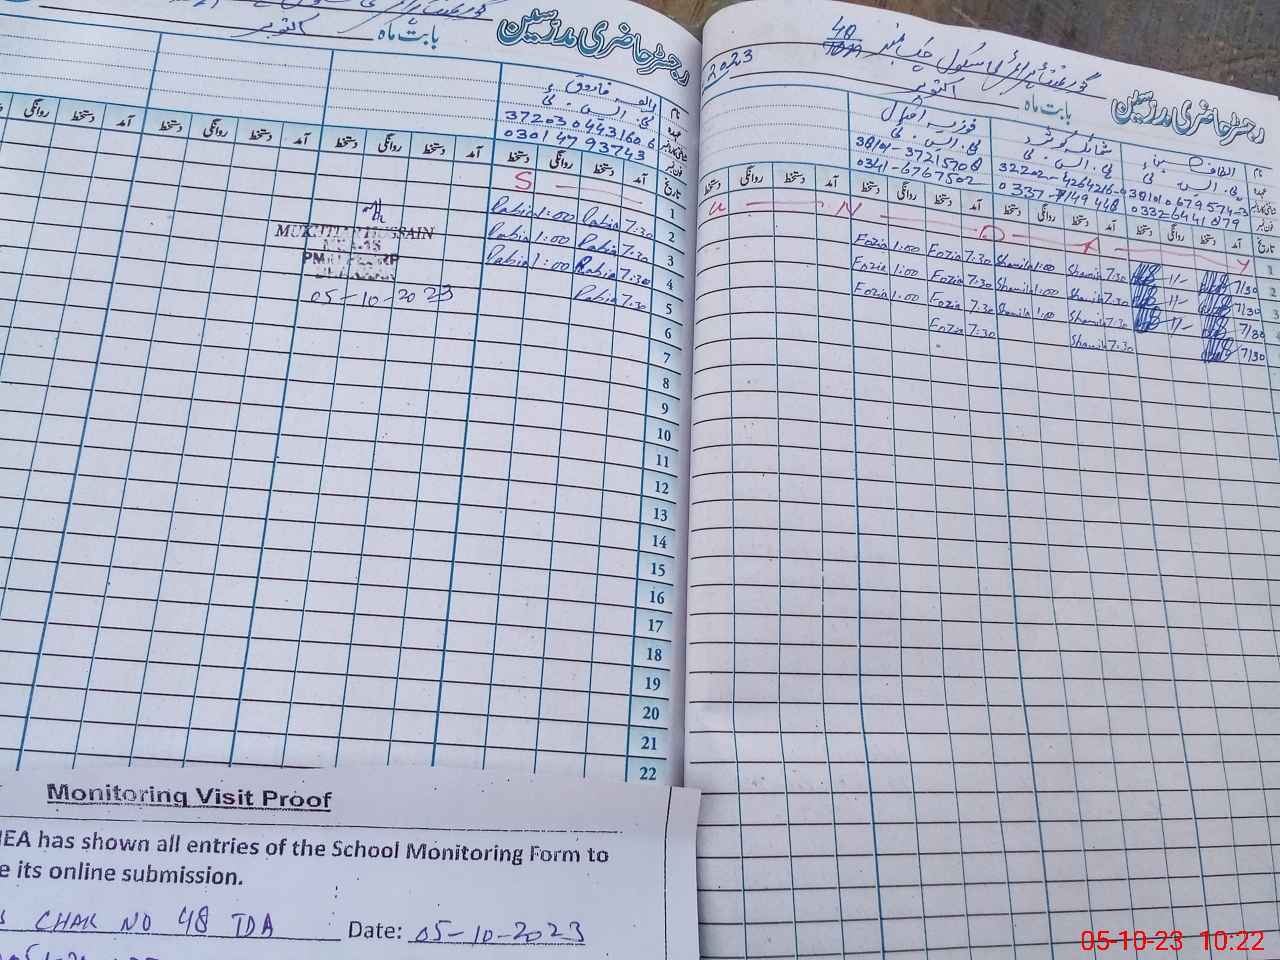 رجسٹر حاضری مدرسین
بابت ماہ اکتوبر 2023
گورنمنٹ پرائمری سکول چک نمبر 48/TDA
نام
عہدہ
تاریخ
الطاف حسین
پی۔ایس۔ٹی
38101 0679574-3
0332 6441879
شمائلہ کوثر
پی۔ایس۔ٹی
32202-4264216-9
0337-7149448
فوزیہ افضل
پی۔ایس۔ٹی
38101-3721570 8
0341-6767502
آمد دستخط روانگی دستخط آمد دستخط روانگی دستخط آمد دستخط روانگی دستخط آمد دستخط روانگی دستخط
1 Y A D N u
2 7/30 1/- Shamila 7:30 Shamila 1:00 Fozia 7:30 Fozia 1:00
3 7/30 1/- Shamila 7:30 Shamila 1:00 Fozia 7:30 Fozia 1:00
7/30 1/- Shamila 7:30 Shamila 1:00 Fozia 7:30 Fozia 1:00
7/30 Shamila 7:30 Fozia 7:30
رجسٹر حاضری مدرسین
بابت ماہ اکتوبر
رابعہ فاروق
پی۔ایس۔ٹی
37203 0443160.6
0301 47 93743
تاریخ آمد دستخط روانگی دستخط آمد دستخط روانگی دستخط آمد دستخط روانگی دستخط آمد دستخط روانگی
1 S
2 Rabia 7:30 Rabia 1:00
3 Rabia 7:30 Rabia 1:00
4 Rabia 7:30 Rabia 1:00
5 Rabia 7:30
6
7
8
9
10
11
12
13
14
15
16
17
18
19
20
21
22
MUKHTIAR HUSSAIN
05-10-2023
Monitoring Visit Proof
MEA has shown all entries of the School Monitoring Form to
its online submission.
CHAK NO 48 TDA Date: 05-10-2023
05-10-23 10:22